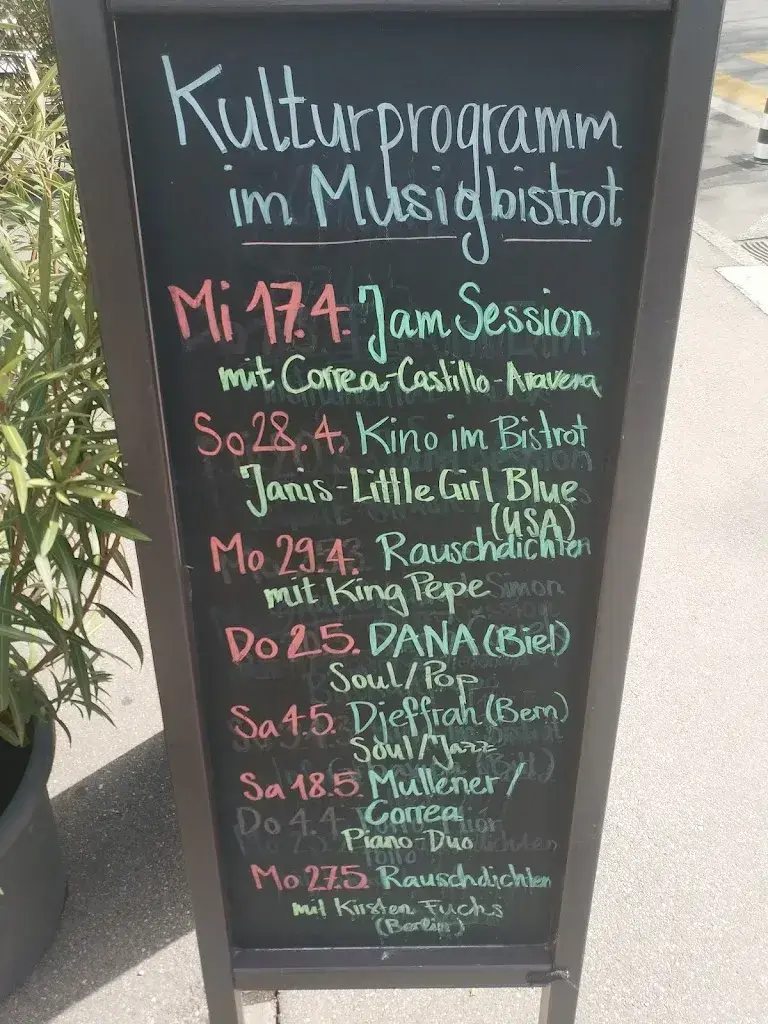 Kulturprogramm
im Musigbistrot
Mi 17.4. Jam Session
mit Correa-Castillo-Aravena
So 28.4. Kino im Bistrot
Janis-Little Girl Blue
(USA)
Mo 29.4. Rauschdichten
mit King Pepe
Do 2.5. DANA (Biel)
Soul/Pop
Sa 4.5. Djeffrah (Bern)
Soul/Jazz
Sa 18.5. Mullener/
Correa
Piano-Duo
Mo 27.5. Rauschdichten
mit Kirsten Fuchs
(Berlin)